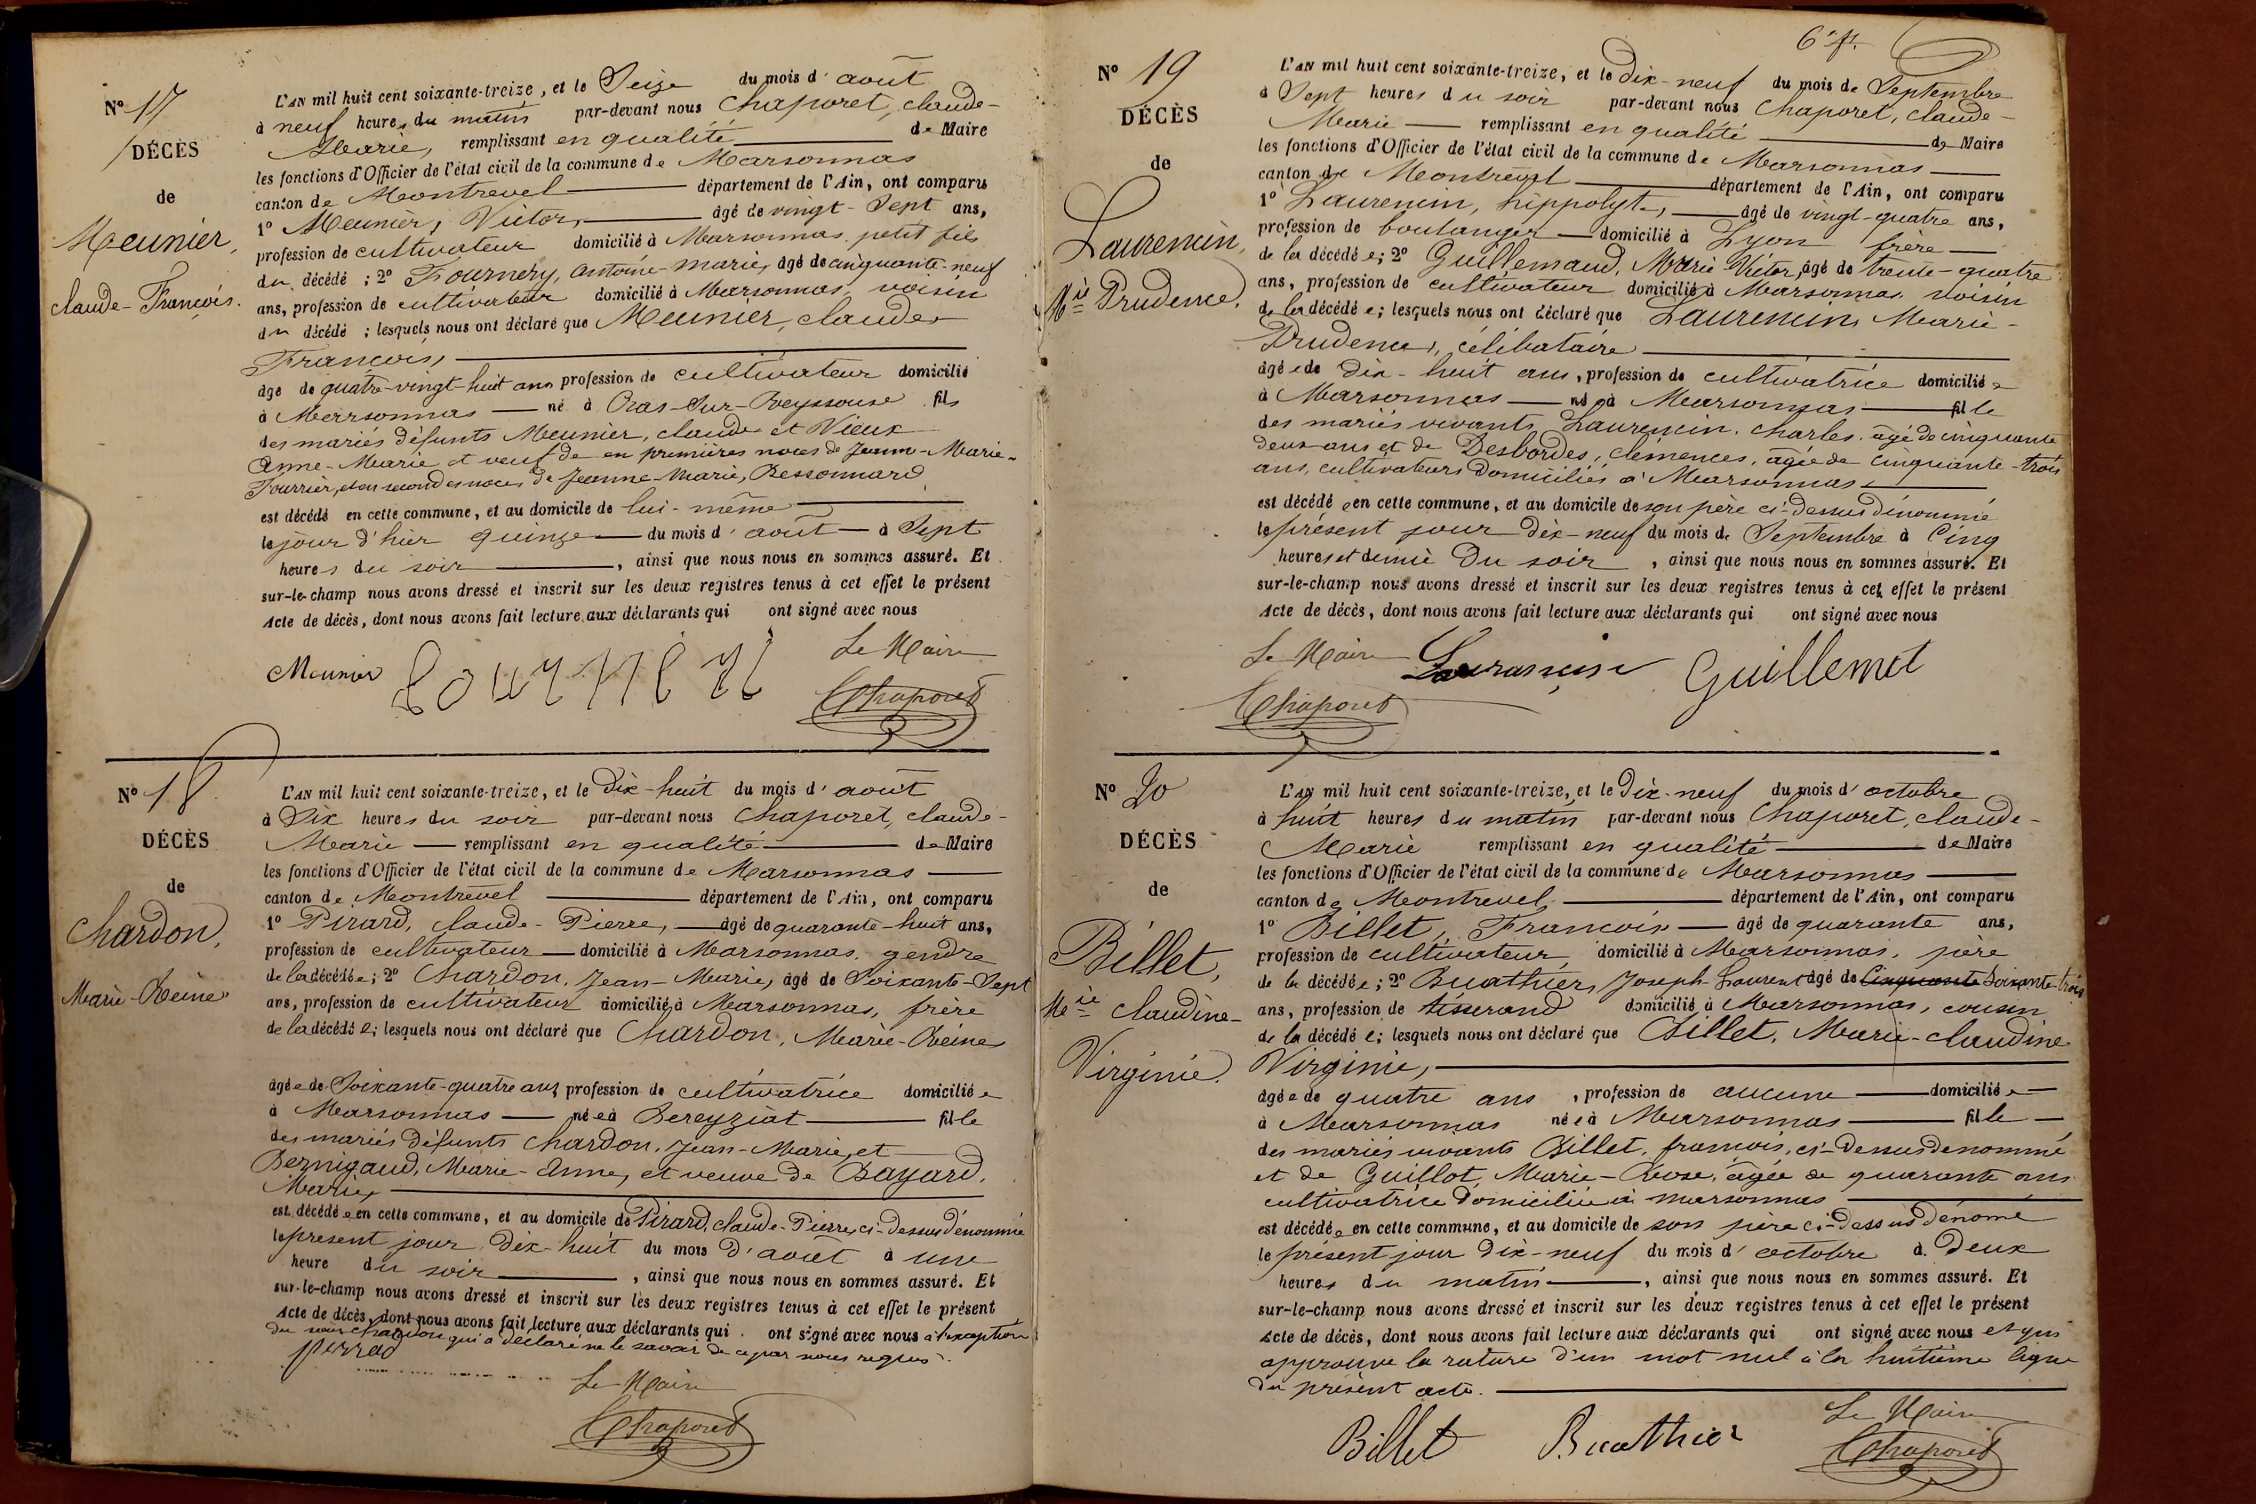 Nº 17
DÉCÈS
de
Meunier,
claude-François.
L'AN mil huit cent soixante-treize, et le Seize du mois d'août
à neuf heures du matin par-devant nous Chaporet, claude-
Marie, remplissant en qualité de Maire
les fonctions d'Officier de l'état civil de la commune de Marsonnas
canton de Montrevel département de l'Ain, ont comparu
1º Meunier, Victor, âgé de vingt-Sept ans,
profession de cultivateur domicilié à Marsonnas petit fils
du décédé ; 2º Fournery, antoine-marie, âgé de cinquante-neuf
ans, profession de cultivateur domicilié à Marsonnas, voisin
du décédé ; lesquels nous ont déclaré que Meunier, claude-
François,
âgé de quatre-vingt-huit ans profession de cultivateur domicilié
à Marsonnas né à Cras-Sur-Reyssouse fils
des mariés défunts Meunier, claude et Vieux
Anne-Marie et veuf de en premières noces de Jeanne-Marie-
Fourrier, et en secondes noces de Jeanne-Marie, Bessonnard
est décédé en cette commune, et au domicile de lui-même
le jour d'hier quinze du mois d'août à Sept
heures du soir , ainsi que nous nous en sommes assuré. Et
sur-le-champ nous avons dressé et inscrit sur les deux registres tenus à cet effet le présent
Acte de décès, dont nous avons fait lecture aux déclarants qui ont signé avec nous
Le Maire
Meunier
Chaporet
Nº 18
DÉCÈS
de
Chardon,
Marie-Reine
L'AN mil huit cent soixante-treize, et le Dix-huit du mois d'août
à Six heures du soir par-devant nous Chaporet, claude-
Marie remplissant en qualité de Maire
les fonctions d'Officier de l'état civil de la commune de Marsonnas
canton de Montrevel département de l'Ain, ont comparu
1º Pirard, claude-Pierre, âgé de quarante-huit ans,
profession de cultivateur domicilié à Marsonnas, gendre
de la décédée ; 2º Chardon, Jean-Marie, âgé de Soixante-Sept
ans, profession de cultivateur domicilié à Marsonnas, frère
de la décédée ; lesquels nous ont déclaré que Chardon, Marie-Reine
âgée de Soixante-quatre ans profession de cultivatrice domiciliée
à Marsonnas née à Bereyziat fille
des mariés défunts Chardon, Jean-Marie, et
Bernigaud, Marie-Anne, et veuve de Bayard,
Marie,
est décédée en cette commune, et au domicile de Pirard, claude-Pierre, ci-Dessus dénommé
le présent jour Dix-huit du mois D'août à une
heure du soir , ainsi que nous nous en sommes assuré. Et
sur-le-champ nous avons dressé et inscrit sur les deux registres tenus à cet effet le présent
Acte de décès, dont nous avons fait lecture aux déclarants qui ont signé avec nous à l'exception
du sieur Chardon qui a déclaré ne le savoir de ce par nous requis.
pirrad
Le Maire
Chaporet
6e ft.
Nº 19
DÉCÈS
de
Laurencin,
Mie Prudence.
L'AN mil huit cent soixante-treize, et le Dix-neuf du mois de Septembre
à Sept heures du soir par-devant nous Chaporet, claude-
Marie remplissant en qualité de Maire
les fonctions d'Officier de l'état civil de la commune de Marsonnas
canton de Montrevel département de l'Ain, ont comparu
1º Laurencin, hippolyte, âgé de vingt-quatre ans,
profession de boulanger domicilié à Lyon frère
de la décédée ; 2º Guillemaud, Marie Victor, âgé de trente-quatre
ans, profession de cultivateur domicilié à Marsonnas voisin
de la décédée ; lesquels nous ont déclaré que Laurencin, Marie-
Prudence, célibataire
âgée de Dix-huit ans, profession de cultivatrice domiciliée
à Marsonnas née à Marsonnas fille
des mariés vivants Laurencin, Charles, âgé de cinquante
deux ans et de Desbordes, clémence, âgée de cinquante-trois
ans, cultivateurs domiciliés à Marsonnas
est décédée en cette commune, et au domicile de son père ci-dessus dénommé
le présent jour Dix-neuf du mois de Septembre à Cinq
heures et demie Du soir , ainsi que nous nous en sommes assuré. Et
sur-le-champ nous avons dressé et inscrit sur les deux registres tenus à cet effet le présent
Acte de décès, dont nous avons fait lecture aux déclarants qui ont signé avec nous
Le Maire Guillemet
Chaporet
Nº 20
DÉCÈS
de
Billet,
Mie claudine-
Virginie.
L'AN mil huit cent soixante-treize, et le Dix-neuf du mois d'octobre
à huit heures du matin par-devant nous Chaporet, claude-
Marie remplissant en qualité de Maire
les fonctions d'Officier de l'état civil de la commune de Marsonnas
canton de Montrevel département de l'Ain, ont comparu
1º Billet, François âgé de quarante ans,
profession de cultivateur domicilié à Marsonnas, père
de la décédée ; 2º Buathier, Joseph-Laurent âgé de Cinquante Soixante-trois
ans, profession de tisserand domicilié à Marsonnas, cousin
de la décédée ; lesquels nous ont déclaré que Billet, Marie-claudine
Virginie,
âgée de quatre ans , profession de aucune domiciliée
à Marsonnas née à Marsonnas fille
des mariés vivants Billet, françois, ci-Dessus denommé
et de Guillot, Marie-Rose, âgée de quarante ans
cultivatrice domiciliée à marsonnas
est décédée en cette commune, et au domicile de son père ci-dessus dénomé
le présent jour dix-neuf du mois d'octobre à Deux
heures du matin , ainsi que nous nous en sommes assuré. Et
sur-le-champ nous avons dressé et inscrit sur les deux registres tenus à cet effet le présent
Acte de décès, dont nous avons fait lecture aux déclarants qui ont signé avec nous et qui
approuve la rature d'un mot nul à la huitième ligne
du présent acte.
Le Maire
Billet Buathier
Chaporet